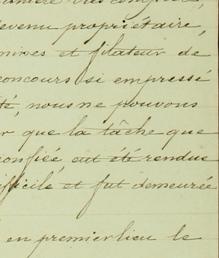 devenu propriétaire,
et filateur de
concours si empressé
nous ne pouvons
que la tâche que
confiée, eut été rendue
difficile, et fut demeurée
en premier lieu le